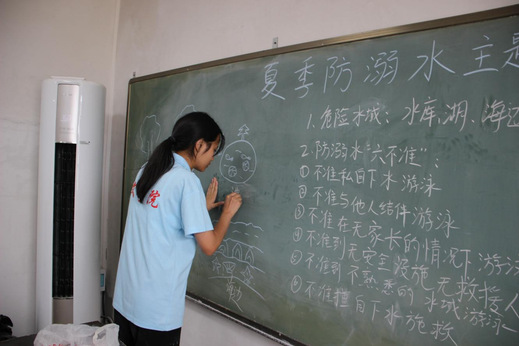 夏季防溺水主题
1.危险水域:水库、湖、海边
2.防溺水"六不准":
①不准私自下水游泳
②不准与他人结伴游泳
③不准在无家长的情况下游泳
④不准到无安全设施、无救援人
⑤不准到不熟悉的水域游泳
⑥不准擅自下水施救
院